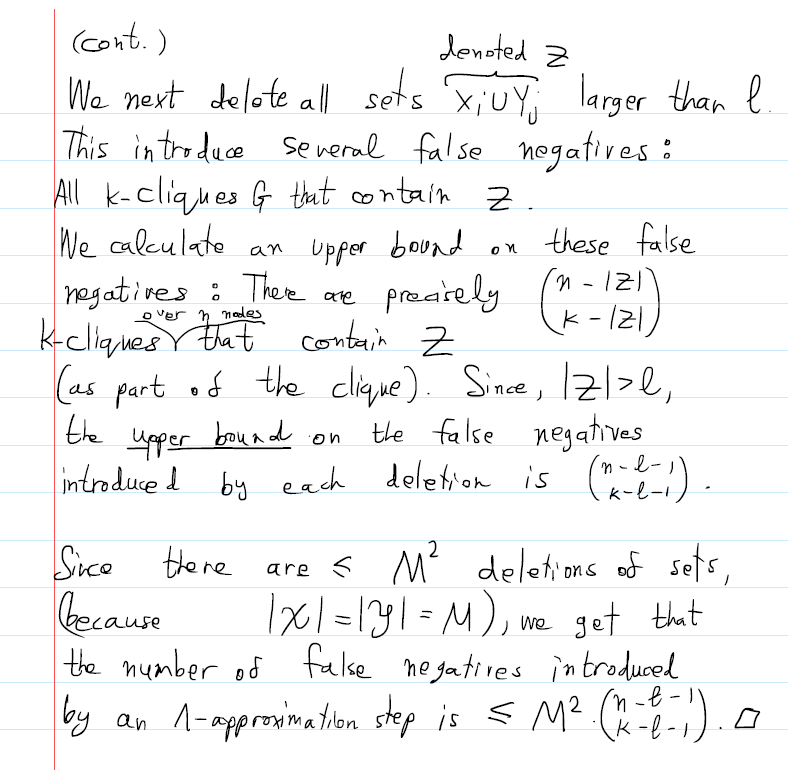 (cont.)
denoted Z
We next delete all sets X_i ∪ Y_j larger than ℓ.
This introduce several false negatives:
All k-cliques G that contain Z.
We calculate an upper bound on these false
negatives: There are precisely \binom{n-|Z|}{k-|Z|}
over n nodes
k-cliques that contain Z
(as part of the clique). Since, |Z|>ℓ,
the upper bound on the false negatives
introduced by each deletion is \binom{n-ℓ-1}{k-ℓ-1}.
Since there are ≤ M² deletions of sets,
(because |𝒳|=|𝒴|=M), we get that
the number of false negatives introduced
by an ∧-approximation step is ≤ M²·\binom{n-ℓ-1}{k-ℓ-1}. □